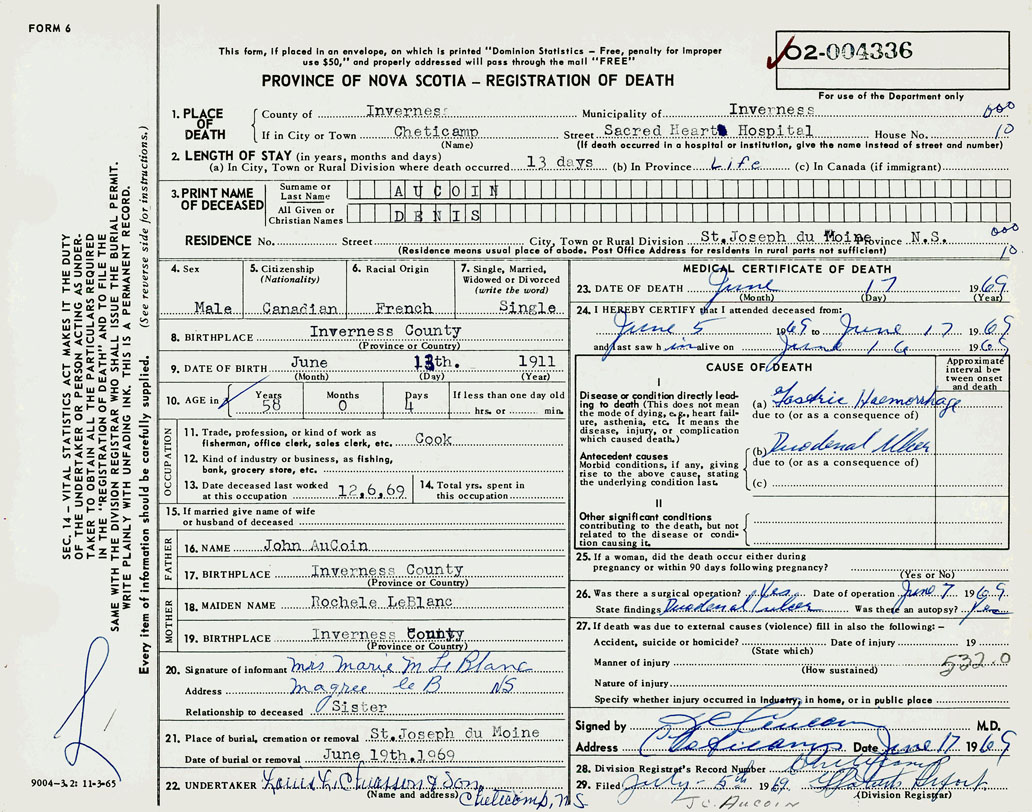 FORM 6
This form, if placed in an envelope, on which is printed "Dominion Statistics – Free, penalty for improper
use $50," and properly addressed will pass through the mail "FREE"
PROVINCE OF NOVA SCOTIA – REGISTRATION OF DEATH
02-004336
For use of the Department only
1. PLACE OF DEATH County of Inverness Municipality of Inverness 000
If in City or Town Cheticamp Street Sacred Heart Hospital House No. 10
(Name) (If death occurred in a hospital or institution, give the name instead of street and number)
2. LENGTH OF STAY (in years, months and days)
(a) In City, Town or Rural Division where death occurred 13 days (b) In Province Life (c) In Canada (if immigrant)
3. PRINT NAME OF DECEASED Surname or Last Name AUCOIN
All Given or Christian Names DENIS
RESIDENCE No. Street City, Town or Rural Division St.Joseph du Moine Province N.S. 000
(Residence means usual place of abode. Post Office Address for residents in rural parts not sufficient) 10
4. Sex 5. Citizenship (Nationality) 6. Racial Origin 7. Single, Married, Widowed or Divorced (write the word)
Male Canadian French Single
8. BIRTHPLACE Inverness County
(Province or Country)
9. DATE OF BIRTH June 13th. 1911
(Month) (Day) (Year)
10. AGE in Years Months Days If less than one day old
58 0 4 hrs. or min.
OCCUPATION
11. Trade, profession, or kind of work as
fisherman, office clerk, sales clerk, etc. Cook
12. Kind of industry or business, as fishing,
bank, grocery store, etc.
13. Date deceased last worked
at this occupation 12,6,69
14. Total yrs. spent in
this occupation
15. If married give name of wife
or husband of deceased
FATHER
16. NAME John AuCoin
17. BIRTHPLACE Inverness County
(Province or Country)
MOTHER
18. MAIDEN NAME Rochele LeBlanc
19. BIRTHPLACE Inverness County
(Province or Country)
20. Signature of informant Mrs Marie M Le Blanc
Address Magree le B NS
Relationship to deceased Sister
21. Place of burial, cremation or removal St.Joseph du Moine
Date of burial or removal June 19th.1969
22. UNDERTAKER Louis L. Chiasson & Son,
(Name and address) Cheticamp, NS
MEDICAL CERTIFICATE OF DEATH
23. DATE OF DEATH June 17 1969
(Month) (Day) (Year)
24. I HEREBY CERTIFY that I attended deceased from:
June 5 1969 to June 17 1969
and last saw him alive on June 16 1969
CAUSE OF DEATH
Approximate interval between onset and death
I
Disease or condition directly leading
to death (This does not mean
the mode of dying, e.g., heart failure,
asthenia, etc. It means the
disease, injury, or complication
which caused death.)
(a) Gastric Haemorrhage
due to (or as a consequence of)
Antecedent causes
Morbid conditions, if any, giving
rise to the above cause, stating
the underlying condition last.
(b) Duodenal Ulcer
due to (or as a consequence of)
(c)
II
Other significant conditions
contributing to the death, but not
related to the disease or condition
causing it.
25. If a woman, did the death occur either during
pregnancy or within 90 days following pregnancy?
(Yes or No)
26. Was there a surgical operation? Yes Date of operation June 7 1969
State findings Duodenal Ulcer Was there an autopsy? Yes
27. If death was due to external causes (violence) fill in also the following: –
Accident, suicide or homicide? Date of injury 19
(State which)
Manner of injury 532.0
(How sustained)
Nature of injury
Specify whether injury occurred in industry, in home, or in public place
Signed by J C Aucoin M.D.
Address Cheticamp Date June 17 1969
28. Division Registrar's Record Number Cheticamp
29. Filed July 5th 1969
(Division Registrar)
J.C. AUCOIN
SEC. 14 – VITAL STATISTICS ACT MAKES IT THE DUTY
OF THE UNDERTAKER OR PERSON ACTING AS UNDER-
TAKER TO OBTAIN ALL THE PARTICULARS REQUIRED
IN THE "REGISTRATION OF DEATH" AND TO FILE THE
SAME WITH THE DIVISION REGISTRAR WHO SHALL ISSUE THE BURIAL PERMIT.
WRITE PLAINLY WITH UNFADING INK. THIS IS A PERMANENT RECORD.
Every item of information should be carefully supplied. (See reverse side for instructions.)
9004–3.2: 11-3-65